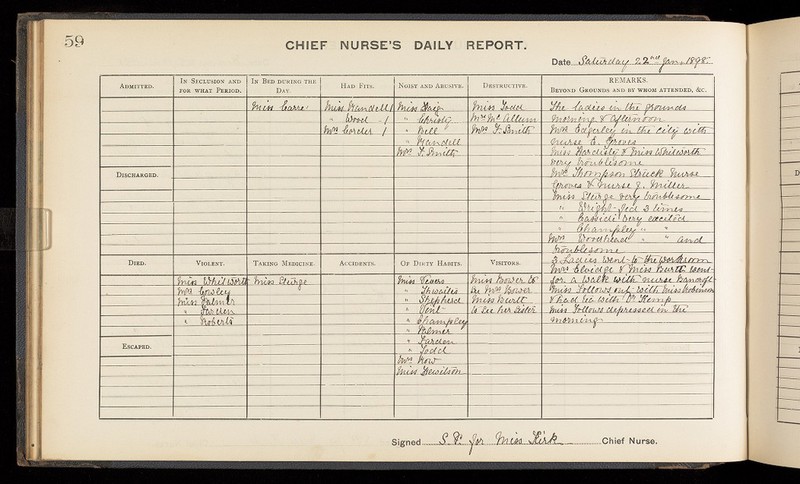 59
CHIEF NURSE'S DAILY REPORT.
Date Saturday 22nd Jan. 1898.
ADMITTED.
IN SECLUSION AND FOR WHAT PERIOD.
IN BED DURING THE DAY.
HAD FITS.
NOISY AND ABUSIVE.
DESTRUCTIVE.
REMARKS.
BEYOND GROUNDS AND BY WHOM ATTENDED, &C.
Miss Carre
Miss Mandell 1
" Wood - 1
Mrs Corder 1
Miss Haig
" Christie
" Bell
" Mandell
Mrs F. Smith
Miss Todd
Mrs McCallum
Mrs F. Smith
The ladies in the grounds
morning & afternoon
Mrs Edgerley in the city with
nurse E. Groves
Miss Hardisty & Miss Whitworth
very troublesome
Mrs Thompson struck Nurse
Groves & nurse J. Miller
Miss Steirge very troublesome
" Wright fed 3 times
" very excited
" Champley " "
Mrs Woodhead " " and
troublesome
3 Ladies went to the workroom
Mrs Elvidge & Miss Burtt went
for a walk with nurse
Miss Follows out with Miss Robinson
& had tea with Dr Kemp
Miss Follows depressed in the
morning
DISCHARGED.
DIED.
VIOLENT.
TAKING MEDICINE.
ACCIDENTS.
OF DIRTY HABITS.
VISITORS.
Miss Whitworth
Mrs Cowley
Miss Palmer
"
" Roberts
Miss Steirge
Miss
" Thwaites
" Shepherd
" Vent
" Champley
" Palmer
"
" Todd
Mrs Row
Miss Hewitson
Miss Bower to
see Mrs Bower
Miss Burtt
to see her sister
ESCAPED.
Signed S. P. for Miss Kirk Chief Nurse.